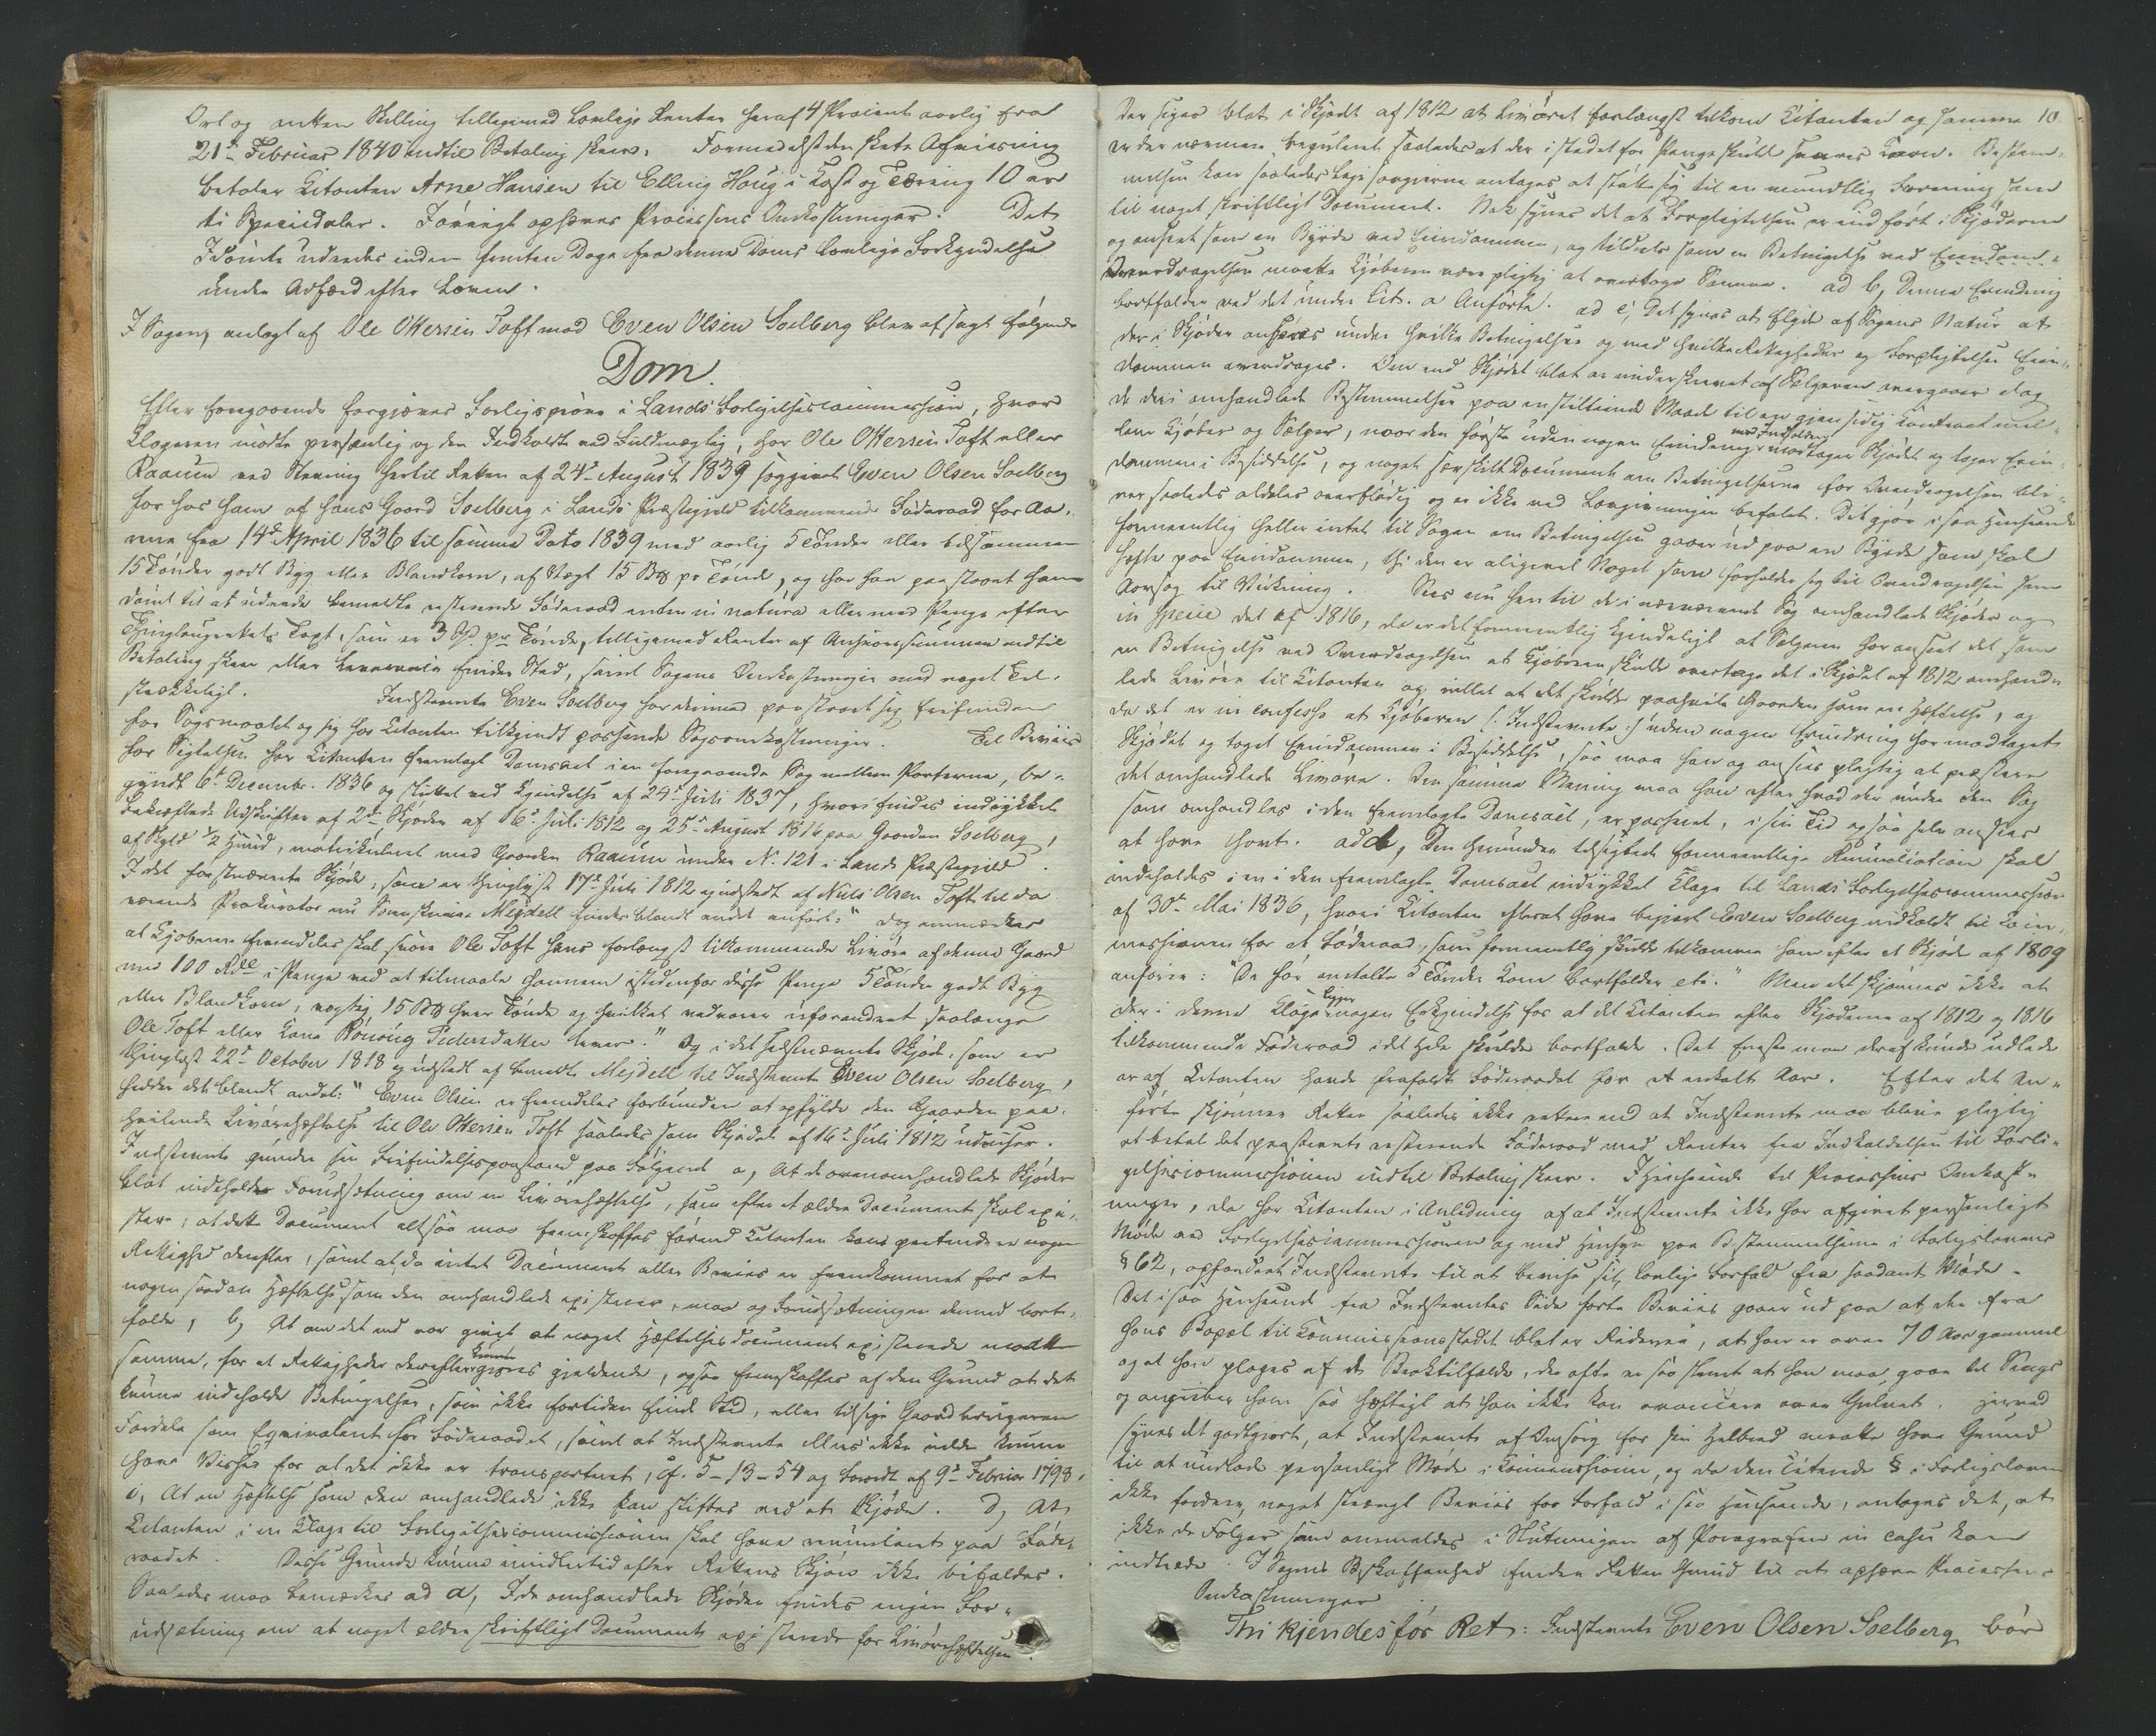 Ort og atten Skilling tillegemed lovlige Renter heraf 4 Procent aarlig fra
21de Februar 1840 indtil Betaling skeer. Formedelst den skete Afviisning
betaler Citanten Arne Hansen til Elling Houg i Kost og Tæring 10 er
ti Speciedaler. Iøvrigt ophæves Processens Omkostninger. Det
Idømte udredes inden femten Dage fra denne Doms lovlige Forkyndelse
under Adfærd efter Loven.
I Sagen, anlagt af Ole Ottersen Toft mod Even Olsen Soelberg blev afsagt følgende
Dom.
Efter foregaaende forgjæves Forligsprøve i Lands Forligelsescommission, hvor
Klageren mødte personlig og den Indkaldte ved Fuldmægtig, har Ole Ottersen Toft eller
Raaum ved Stevning hertil Retten af 24de August 1839 søggivet Even Olsen Soelberg
for hos ham af hans Gaard Soelberg i Lands Præstegjeld tilkommende Føderaad for Aa-
rene fra 14de April 1836 til samme Dato 1839 med aarlig 5 Tønder eller tilsammen
15 Tønder godt Byg eller Blandkorn, af Vægt 15 Bpd pr Tønde, og har han paastaaet ham
dømt til at udrede bemeldte resterende Føderaad enten in natura eller med Penge efter
Thinglaugrettets Taxt, som er 3 Spd. pr Tønde, tilligemed Renter af Ansvarssummen indtil
Betaling skeer eller Leverance finder Sted, samt Sagens Omkostninger med noget Til-
strækkeligt. Indstevnte Even Soelberg har derimod paastaaet sig frifunden
for Søgsmaalet og sig hos Citanten tilkjendt passende Sagsomkostninger. Til Beviis
for Sigtelsen har Citanten fremlagt Domsact i en foregaaende Sag mellem Parterne, be-
gyndt 6te Decembr. 1836 og sluttet ved Kjendelse af 24de Juli 1837, hvori findes indrykket
bekræftede Udskrifter af 2de Skjøder af 16de Juli 1812 og 25de August 1816 paa Gaarden Soelberg,
af Skyld 1/2 Huud, matriculeret med Gaarden Raaum under No. 121 i Lands Præstegjeld.
I det førstnævnte Skjøde, som er thinglyst 17de Juli 1812 og udstedt af Niels Olsen Toft til da
værende Prokurator nu Sorenskriver Mejdell findes blandt andet anført: "dog anmærkes
at Kjøberen fremdeles skal svare Ole Toft hans forlængst tilkommende Livøre af denne Gaard
med 100 Rdlr i Penge ved at tilmaale hannem istedenfor disse Penge 5 Tønder godt Byg
eller Blandkorn, vægtig 15 Bpd hver Tønde og hvilket vedvarer uforandret saalænge
Ole Toft eller Kone Rønnøug Pedersdatter lever." Og i det sidstnævnte Skjøde, som er
thinglæst 22de October 1818 og udstedt af bemeldte Mejdell til Indstevnte Even Olsen Soelberg,
hedder det blandt andet: "Even Olsen er fremdeles forbunden at opfylde den Gaarden paa-
hvilende Livørehæftelse til Ole Ottersen Toft saaledes som Skjødet af 16de Juli 1812 udviser.
Indstevnte grunder sin Frifindelsespaastand paa Følgende a, At de ovenomhandlede Skjøder
blot indeholder Forudsætning om en Livørehæftelse, som efter et ældre Document skal exi-
stere; at dette Document altsaa maa fremskaffes førend Citanten kan prætendere nogen
Rettighed derefter, samt at, da intet Document eller Beviis er fremkommet for at
nogen saadan Hæftelse som den omhandlede existerer, maa og Forudsætningen dermed bort-
falde, b, At om det end var givet at noget Hæftelsesdocument existerede maatte
samme, for at Rettigheder derefter kunne gjøres gjeldende, ogsaa fremskaffes af den Grund at det
kunne indeholde Betingelser, som ikke fortiden finde Sted, eller tilsige Gaardbrugeren
Fordele som Eqvivalent for Føderaadet, samt at Indstevnte ellers ikke vilde kunne
have Vished for at det ikke er transporteret, cfr. 5-13-54 og Forordn. af 9de Februar 1798.
c, At en Hæftelse som den omhandlede ikke kan stiftes ved et Skjøde. d, At
Citanten i en Klage til Forligelsescommissionen skal have renunceret paa Føde-
raadet. Disse Grunde kunne imidlertid efter Rettens Skjøn ikke bifaldes.
Saaledes maa bemærkes ad a, I de omhandlede Skjøder findes ingen For-
udsætning om at noget ældre skriftligt Document existerede for Livørehæftelsen.
10
Der siges blot i Skjødet af 1812 at Livøret forlængst tilkom Citanten og samme
er der nærmere reguleret saaledes at der istedet for Penge skulde svares Korn. Bestem-
melsen kan saaledes antages at støtte sig til en mundtlig Forening som
til noget skriftligt Document. Nok synes det at Forpligtelsen er indført i Skjøderne
og anseet som en Byrde ved Eiendommen, og tildeels som en Betingelse ved Eiendoms-
Overdragelsen maatte Kjøberen være pligtig at overtage Samme. ad b, Denne Erindring
bortfalder ved det under Lit. a Anførte. ad c, Det synes at flyde af Sagens Natur at
der i Skjøder anføres under hvilke Betingelser og med hvilke Rettigheder og Forpligtelser Eien-
dommen overdrages. Om end Skjødet blot er underskrevet af Sælgeren overgaaer dog
de deri omhandlede Bestemmelser paa en stiltiende Maade til en gjensidig Contract mel-
lem Kjøber og Sælger, naar den første uden nogen Erindring ved Indholdet modtager Skjødet og tager Eien-
dommen i Besiddelse, og noget særskilt Document om Betingelserne for Overdragelsen bli-
ver saaledes aldeles overflødig og er ikke ved Lovgivningen befalet. Det gjør i saa Henseende
formeentlig heller intet til Sagen om Betingelsen gaaer ud paa en Byrde som skal
hefte paa Eiendommen, thi den er aligevel Noget som forholder sig til Overdragelsen som
Aarsag til Virkning. Sees nu hen til de i nærværende Sag omhandlede Skjøder og
in specie det af 1816, da er det formeentlig kjendeligt at Sælgeren har anseet det som
en Betingelse ved Overdragelsen at Kjøberen skulde overtage det i Skjødet af 1812 omhand-
lede Livøre til Citanten og villet at det skulde paahvile Gaarden som en Hæftelse, og
da det er in confesso at Kjøberen /: Indstevnte :/ uden nogen Erindring har modtaget
Skjødet og taget Eiendommen i Besiddelse, saa maa han og ansees pligtig at præstere
det omhandlede Livøre. Den samme Mening maa han efter hvad der under den Sag
som omhandles i den fremlagte Domsact, er passeret, i sin Tid ogsaa selv ansees
at have havt. ad d, Den herunder tilsigtede formeentlige Renunciation skal
indeholdes i en i den fremlagte Domsact indrykket Klage til Lands Forligelsescommission
af 30te Mai 1836, hvori Citanten efterat have begjært Even Soelberg indkaldt til Com-
missionen for et Føderaad, som formeentlig skulde tilkomme ham efter et Skjøde af 1809
anfører: "De før omtalte 5 Tønder Korn bortfalder etc." Men det skjønnes ikke at
der i denne Klage ligger nogen Erkjendelse for at det Citanten efter Skjøderne af 1812 og 1816
tilkommende Føderaad i det Hele skulde bortfalde. Det Eneste man deraf kunde udlede
er at Citanten havde frafaldt Føderaadet for et enkelt Aar. Efter det An-
førte skjønner Retten saaledes ikke rettere end at Indstevnte maa blive pligtig
at betale det paastevnte resterende Føderaad med Renter fra Indkaldelsen til Forli-
gelsescommissionen indtil Betaling skeer. I Henseende til Processens Omkost-
ninger, da har Citanten i Anledning af at Indstevnte ikke har afgivet personligt
Møde ved Forligelsescommissionen og med Hensyn paa Bestemmelserne i Forligsloven
§ 62, opfordret Indstevnte til at bevise sit lovlige Forfald fra saadant Møde.
Det i saa Henseende fra Indstevntes Side førte Beviis gaaer ud paa at der fra
hans Bopæl til Commissionsstedet blot er Ridevei, at han er over 70 Aar gammel
og at han plages af de Broktilfælde, der ofte er saa slemt at han maa gaae til Sengs
og angriber ham saa hæftigt at han ikke kan avancere over Gulvet. Herved
synes det godtgjort, at Indstevnte af Omsorg for sin Helbred maatte have Grund
til at undlade personligt Møde i Commissionen, og da den citerede § i Forligsloven
ikke fordrer noget strængt Beviis for Forfald i saa Henseende, antages det, at
ikke de Følger som ommeldes i Slutningen af Paragrafen in casu kan
indtræde. I Sagens Beskaffenhed finder Retten Grund til at ophæve Processens
Omkostninger.
Thi kjendes for Ret: Indstevnte Even Olsen Soelberg bør